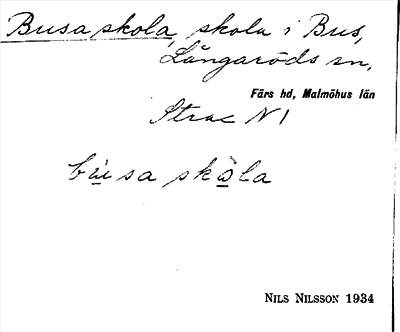 Busaskola, skola i Bus,
Långaröds sn,
Färs hd, Malmöhus län
Strac N 1
bu̲̇sa skò̲la
NILS NILSSON 1934